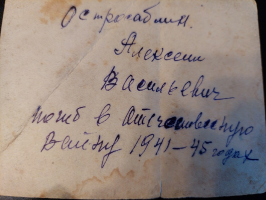 Остросаблин
Алексей
Васильевич
погиб в Отечественную
Войну 1941-45 годах